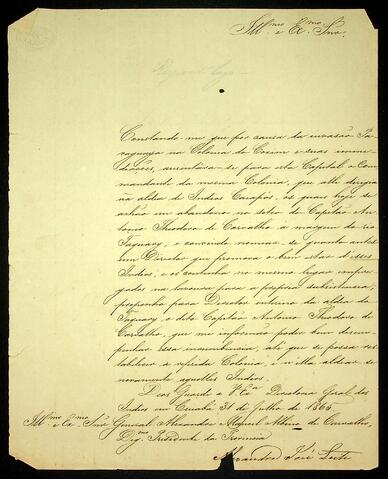 Illmo e Exmo Snr.
Constando me que por causa da invasão Pa-
raguaya na Colonia do Coxim e suas imme-
diações, ausentara-se para esta Capital o Com-
mandante da mesma Colonia, que alli dirigia
na aldeia de Indios Caiapós, os quaes hoje se
achão em abandono no sitio do Capitão An-
tonio Theodoro de Carvalho a margem do rio
Taquary, e convindo nomear-se quanto antes
um Director que promova o bem estar d'esses
Indios, e os contenha no mesmo lugar empre-
gados na lavoura para a propria subsistencia;
proponho para Director interino da aldeia do
Taquary, o dito Capitão Antonio Theodoro de
Carvalho, que me informão poder bem desem-
penhar essa incumbencia, até que se possa res-
tabelecer a referida Colonia, e n'ella aldear-se
novamente aquelles Indios.
Deos Guarde a VExa Directoria Geral dos
Indios em Cuiabá 31 de Julho de 1865
Illmo e Exmo Snr General Alexandre Manoel Albino de Carvalho,
Digmo Presidente da Provincia
Alexandre José Leite